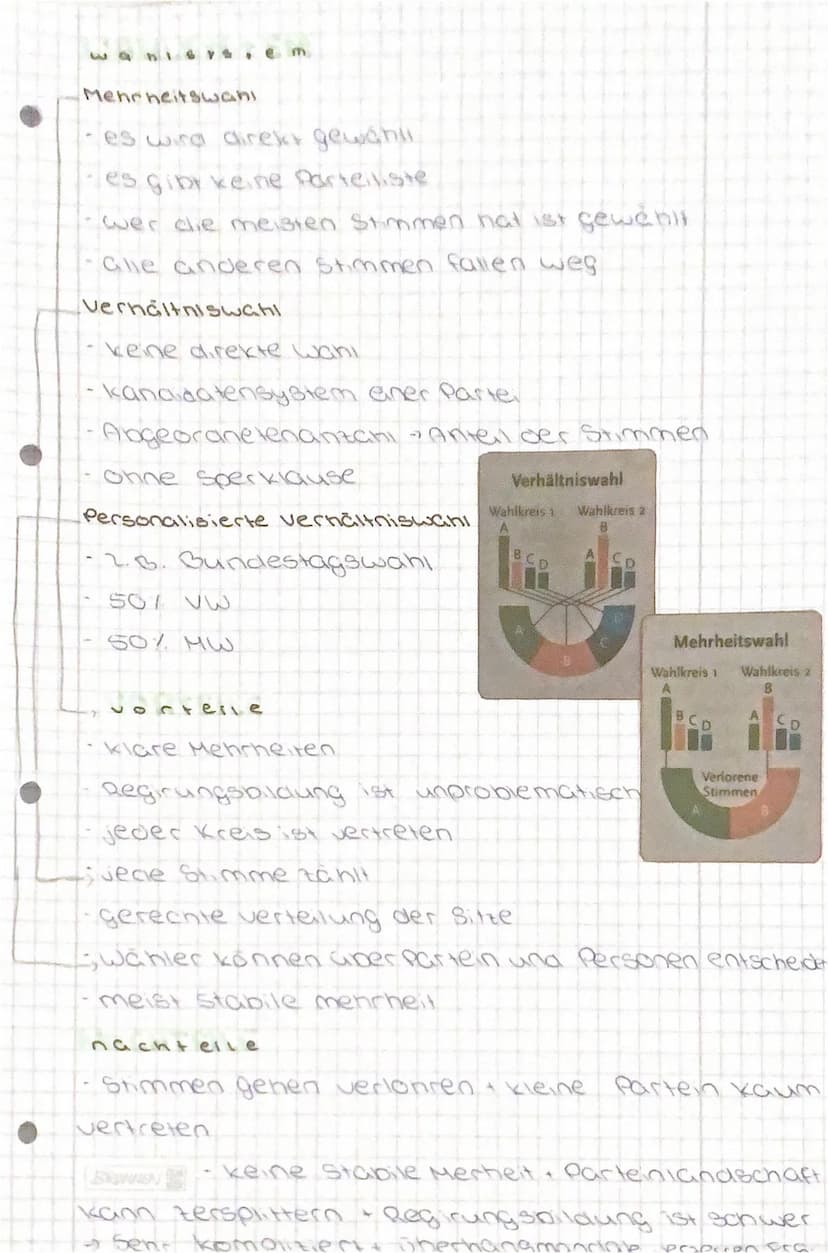 wahlsystem
Mehrheitswahl
- es wird direkt gewählt
- es gibt keine Parteiliste
- wer die meisten Stimmen hat ist gewählt
- alle anderen Stimmen fallen weg
Verhältniswahl
- keine direkte Wahl
- Kandidatensystem einer Partei
- Abgeordnetenanzahl → Anteil der Stimmen
- ohne Sperklause
Personalisierte Verhältniswahl
- z.B. Bundestagswahl
- 50% VW
- 50% MW
Verhältniswahl
Wahlkreis 1 Wahlkreis 2
A B
B C D A C D
A B C D
Mehrheitswahl
Wahlkreis 1 Wahlkreis 2
A B
B C D A C D
Verlorene
Stimmen
A B
vorteile
- klare Mehrheiten
- Regirungsbildung ist unproblematisch
- jeder Kreis ist vertreten
- jede Stimme zählt
- gerechte verteilung der Sitze
- Wähler können über Partein und Personen entscheiden
- meist stabile mehrheit
nachteile
- Stimmen gehen verlohren + kleine Partein kaum
vertreten
- keine stabile Merheit + Parteinlandschaft
kann zersplittern + Regirungsbildung ist schwer
→ Sehr kompliziert + überhangmandate